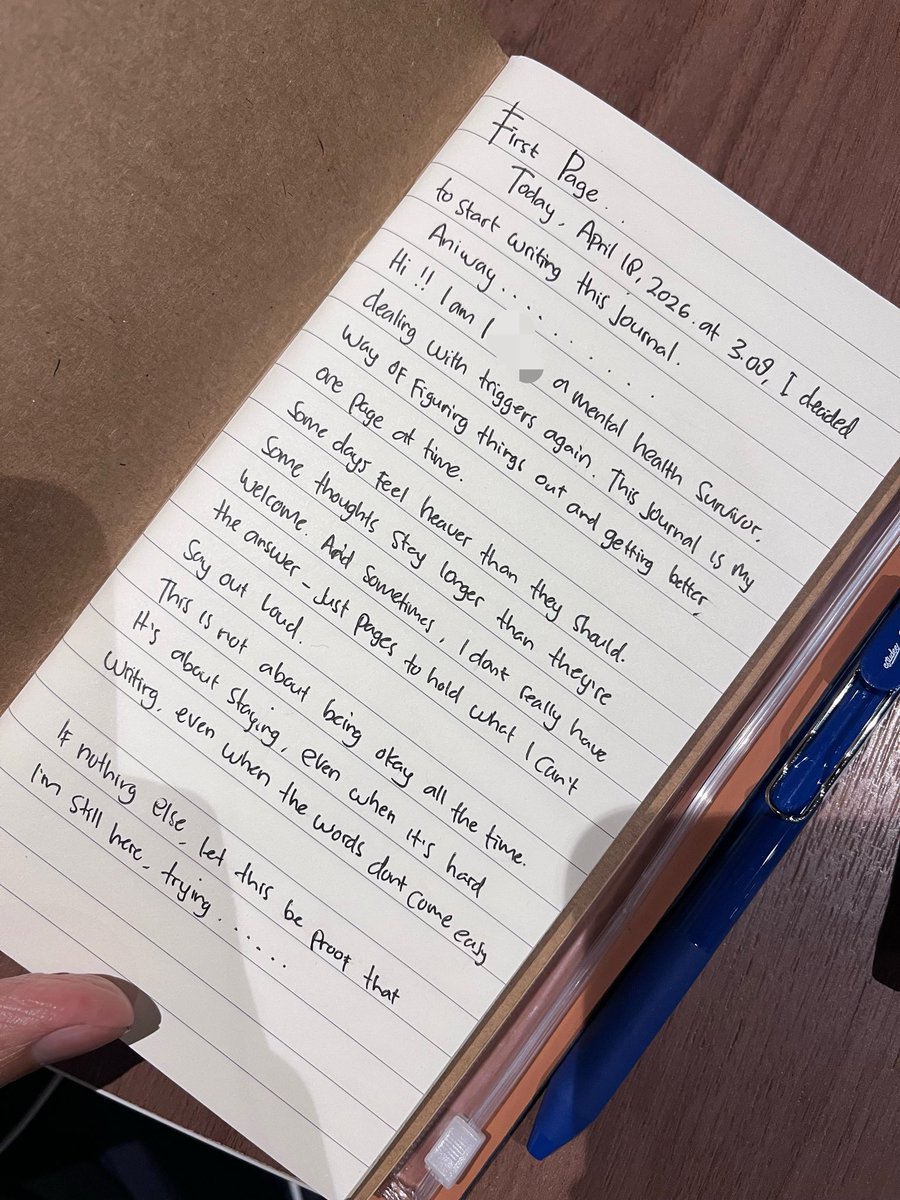 First Page...
Today, April 18, 2026. at 3.09, I decided
to start writing this journal.
Aniway..........
Hi !! I am I
a mental health survivor.
dealing with triggers again. This journal is my
way of figuring things out and getting better,
one page at time.
Some days feel heaver than they should.
Some thoughts stay longer than they're
welcome. And sometimes, I dont really have
the answer - just pages to hold what I can't
say out loud.
This is not about being okay all the time.
It's about staying, even when it's hard
writing, even when the words dont come easy
If nothing else, let this be proof that
I'm still here, trying.....